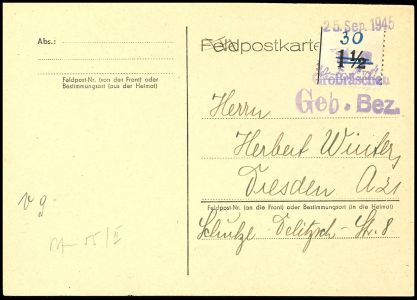 Abs.:
Feldpost-Nr. (von der Front) oder
Bestimmungsort (aus der Heimat)
v g.
25. Sep. 1945
Feldpostkarte
30
1½
Großräschen
Geb. Bez.
Herrn
Herbert Winter,
Dresden A21
Feldpost-Nr. (an die Front) oder Bestimmungsort (in die Heimat)
Schulze-Delitzsch-Str. 8